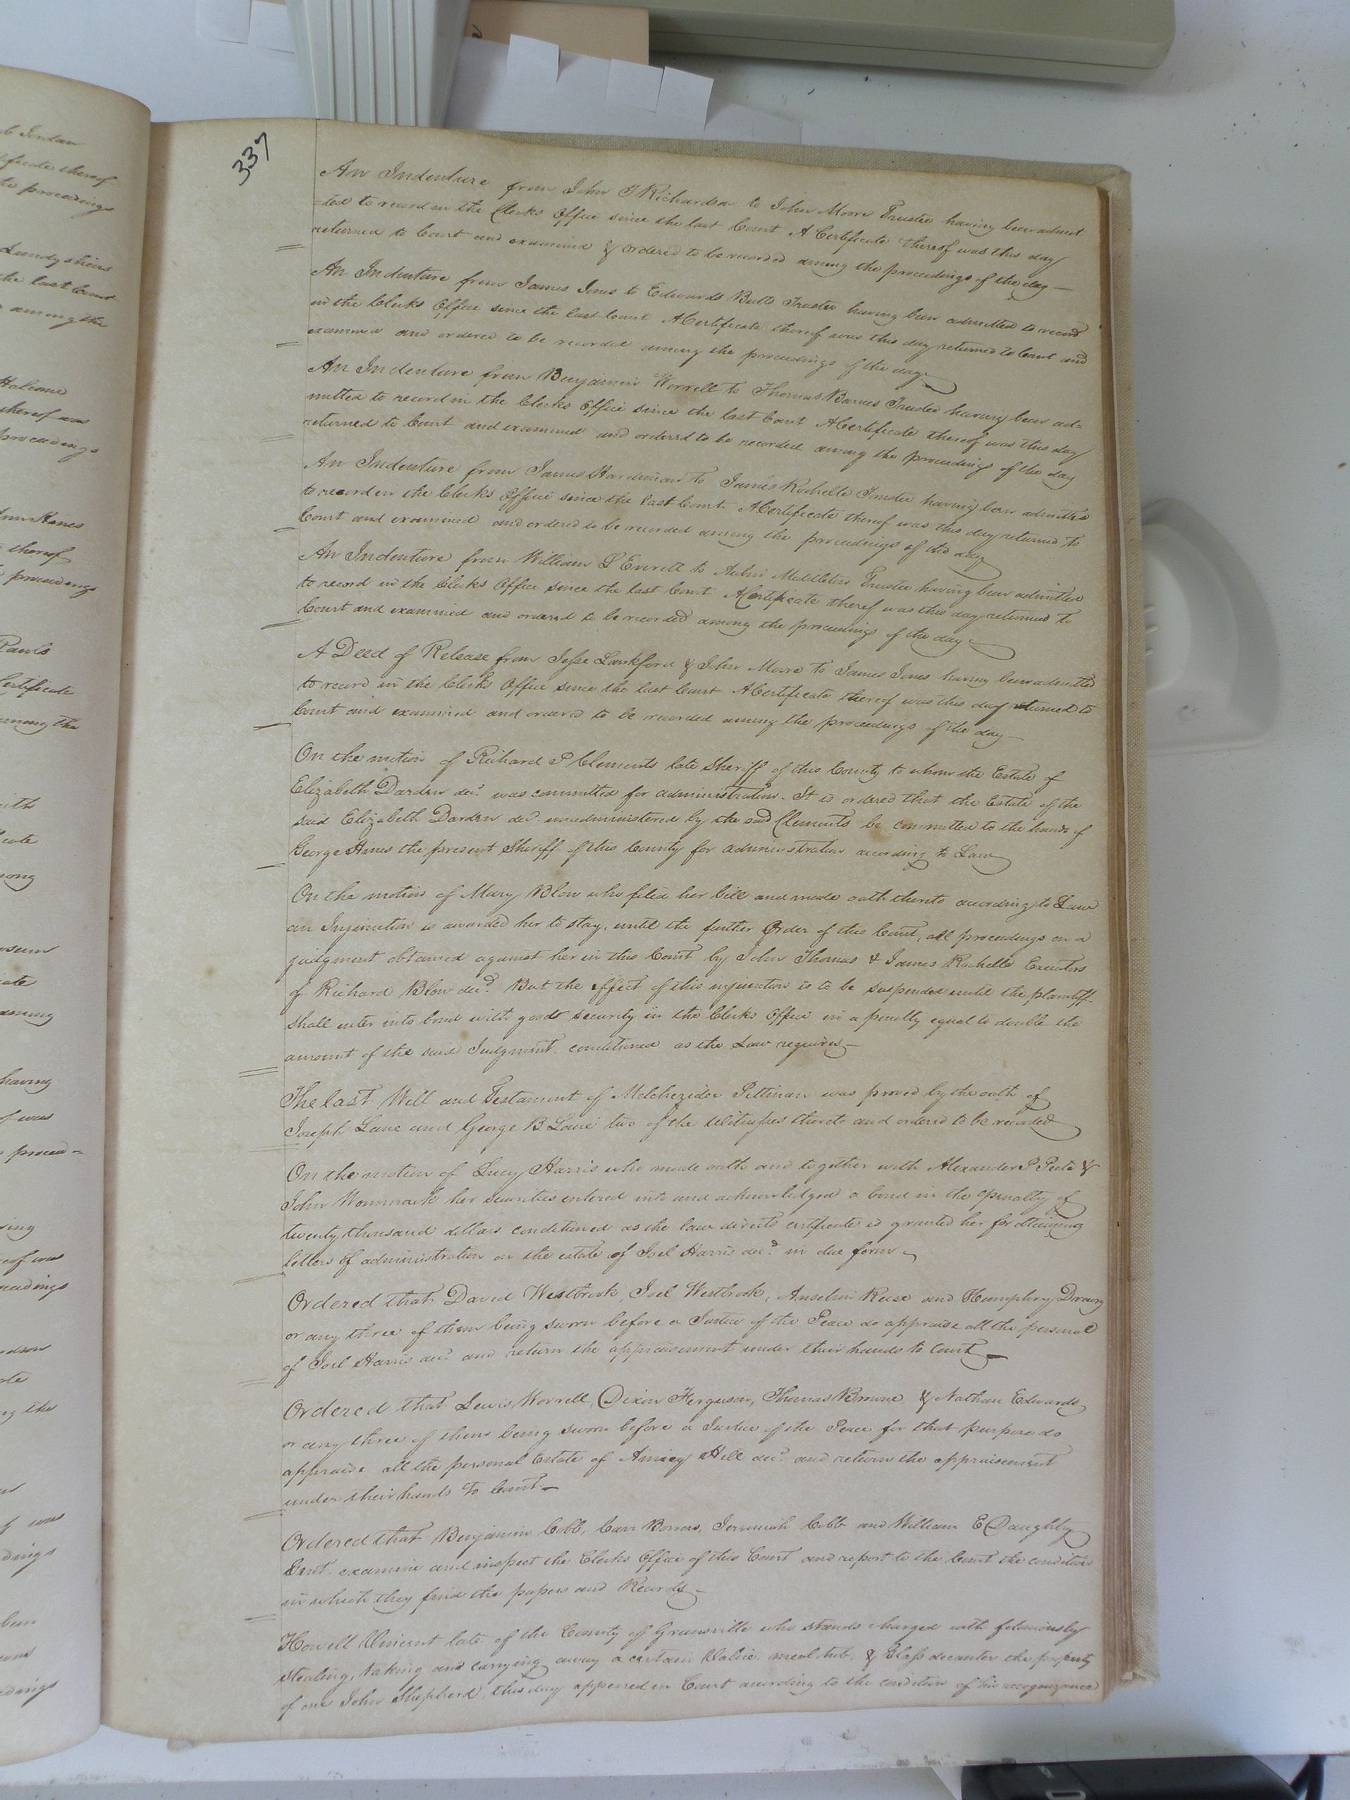 337
An Indenture from John T Richardson to John Moore Trustee having been admit
-ted to record in the Clerks Office since the last Court A Certificate thereof was this day
returned to Court and examined & ordered to be recorded among the proceedings of the day—
An Indenture from James Jones to Edwards Butts Trustee having been admitted to record
in the Clerks Office since the last Court A Certificate thereof was this day returned to Court and
examined and ordered to be recorded among the proceedings of the day
An Indenture from Benjamin Worrell to Thomas Barnes Trustee having been ad=
mitted to record in the Clerks Office since the last Court A Certificate thereof was this day
returned to Court and examined and ordered to be recorded among the proceedings of the day
An Indenture from James Hardiman to James Rochelle Trustee having been admitted
to record in the Clerks Office since the last Court A Certificate thereof was this day returned to
Court and examined and ordered to be recorded among the proceedings of the day
An Indenture from William L Everett to Middleton Trustee having been admitted
to record in the Clerks Office since the last Court A Certificate thereof was this day returned to
Court and examined and ordered to be recorded among the proceedings of the day—
A Deed of Release from Jesse Lankford & John Moore to James Jones having been admitted
to record in the Clerks Office since the last Court A Certificate thereof was this day returned to
Court and examined and ordered to be recorded among the proceedings of the day—
On the motion of Richard P Clements late Sheriff of this County to whom the Estate of
Elizabeth Darden decd was committed for administration. It is ordered that the Estate of the
said Elizabeth Darden decd unadministered by the said Clements be committed to the hands of
George Hines the present Sheriff of this County for administration according to Law
On the motion of Mary Blow who filed her bill and made oath thereto according to Law
an Injunction is awarded her to stay, until the further Order of this Court, all proceedings on a
judgment obtained against her in this Court by John Thomas & James Rochelle Executors
of Richard Blow decd. But the effect of this injunction is to be suspended until the plaintiff
shall enter into bond with good security in the Clerks Office in a penalty equal to double the
amount of the said Judgment conditioned as the Law requires—
The last Will and Testament of Melchezidec Pittman was proved by the oath of
Joseph Lane and George B Lane two of the Witnesses thereto and ordered to be recorded
On the motion of Lucy Harris who made oath and together with Alexander P Peete &
John Wommack her securities entered into and acknowledged a bond in the penalty of
twenty thousand dollars conditioned as the law directs certificate is granted her for obtaining
letters of administration on the estate of Joel Harris decd in due form
Ordered that David Westbrook, Joel Westbrook, Anselm Reese and Humphrey Drewry
or any three of them being sworn before a Justice of the Peace do appraise all the personal
of Joel Harris decd and return the appraisement under their hands to Court—
Ordered that Lewis Worrell, Dixon Ferguson, Thomas Browne & Nathan Edwards
or any three of them being sworn before a Justice of the Peace for that purpose do
appraise all the personal Estate of Amicy Hill decd and return the appraisement
under their hands to Court—
Ordered that Benjamin Cobb, Carr Bowers, Jeremiah Cobb and William E Daughtry
Gent. examine and inspect the Clerks Office of this Court and report to the Court the condition
in which they find the papers and Records—
Howell Vincent late of the County of Greensville who stands charged with feloniously
stealing, taking and carrying away a certain Table, meal tub, & Glass decanter the property
of one John Shepherd, this day appeared in Court according to the condition of his recognizance